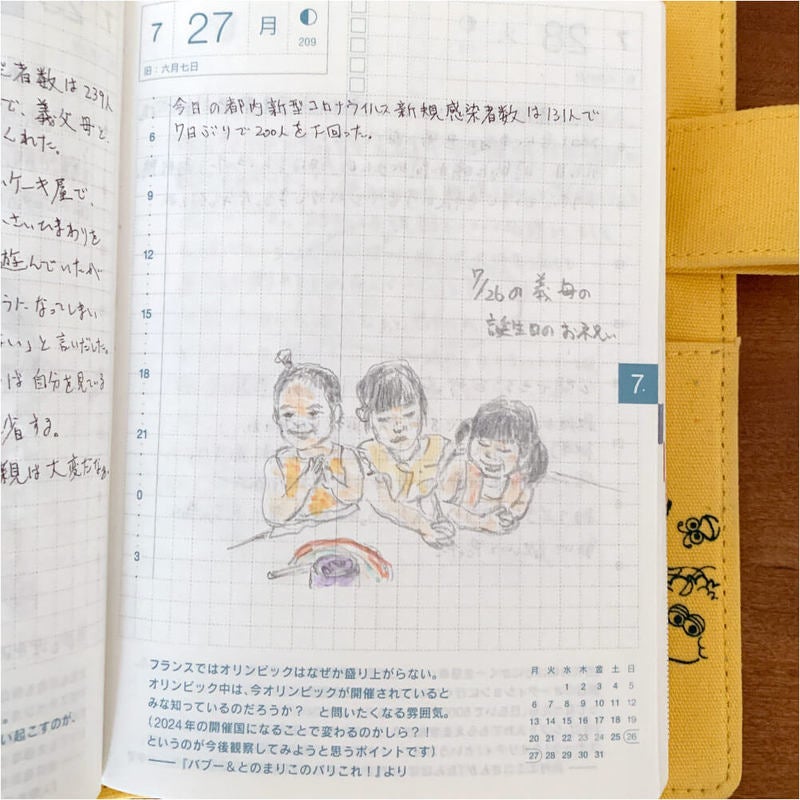 者数は239人
で、義父母と
くれた。
ケーキ屋で、
さいひまわりを
遊んでいたが
うになってしまい
い」と言いだした。
は自分を見ている
省する。
親は大変だなぁ
い起こすのが、
7 27 月
209
旧:六月七日
今日の都内新型コロナウイルス新規感染者数は131人で
7日ぶりで200人を下回った。
6
9
12
15
18
21
0
3
7/26の義母の
誕生日のお祝い
7.
フランスではオリンピックはなぜか盛り上がらない。
オリンピック中は、今オリンピックが開催されていると
みな知っているのだろうか? と問いたくなる雰囲気。
(2024年の開催国になることで変わるのかしら?!
というのが今後観察してみようと思うポイントです)
──『バブー&とのまりこのパリこれ!』より
月 火 水 木 金 土 日
1 2 3 4 5
6 7 8 9 10 11 12
13 14 15 16 17 18 19
20 21 22 23 24 25 26
27 28 29 30 31